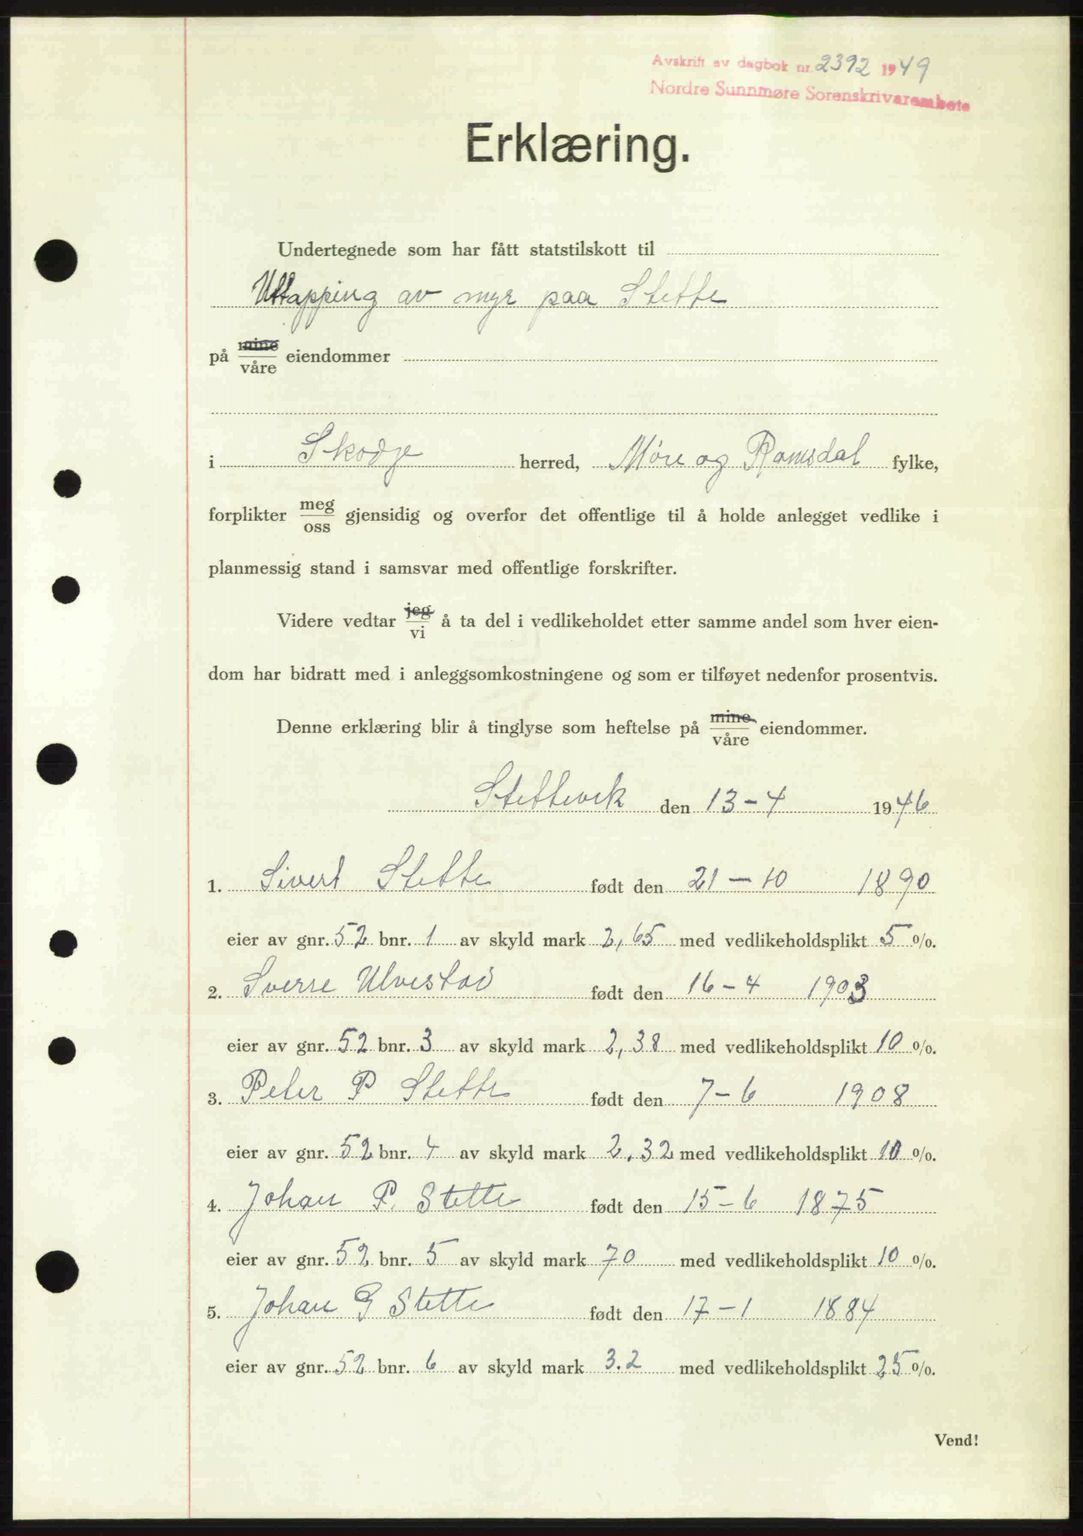 Avskrift av dagbok nr. 2392 1949
Nordre Sunnmøre Sorenskrivarembete
Erklæring.
Undertegnede som har fått statstilskott til
Uttapping av myr paa Stette
på mine/våre eiendommer
i Skodje herred, Møre og Romsdal fylke,
forplikter meg/oss gjensidig og overfor det offentlige til å holde anlegget vedlike i
planmessig stand i samsvar med offentlige forskrifter.
Videre vedtar jeg/vi å ta del i vedlikeholdet etter samme andel som hver eien-
dom har bidratt med i anleggsomkostningene og som er tilføyet nedenfor prosentvis.
Denne erklæring blir å tinglyse som heftelse på mine/våre eiendommer.
Stettevik den 13-4 1946
1. Sivert Stette født den 21-10 1890
eier av gnr. 52 bnr. 1 av skyld mark 2,65 med vedlikeholdsplikt 5 %.
2. Sverre Ulvestad født den 16-4 1903
eier av gnr. 52 bnr. 3 av skyld mark 2,38 med vedlikeholdsplikt 10 %.
3. Peter P Stette født den 7-6 1908
eier av gnr. 52 bnr. 4 av skyld mark 2,32 med vedlikeholdsplikt 10 %.
4. Johan P. Stette født den 15-6 1875
eier av gnr. 52 bnr. 5 av skyld mark 70 med vedlikeholdsplikt 10 %.
5. Johan G Stette født den 17-1 1884
eier av gnr. 52 bnr. 6 av skyld mark 3.2 med vedlikeholdsplikt 25 %.
Vend!